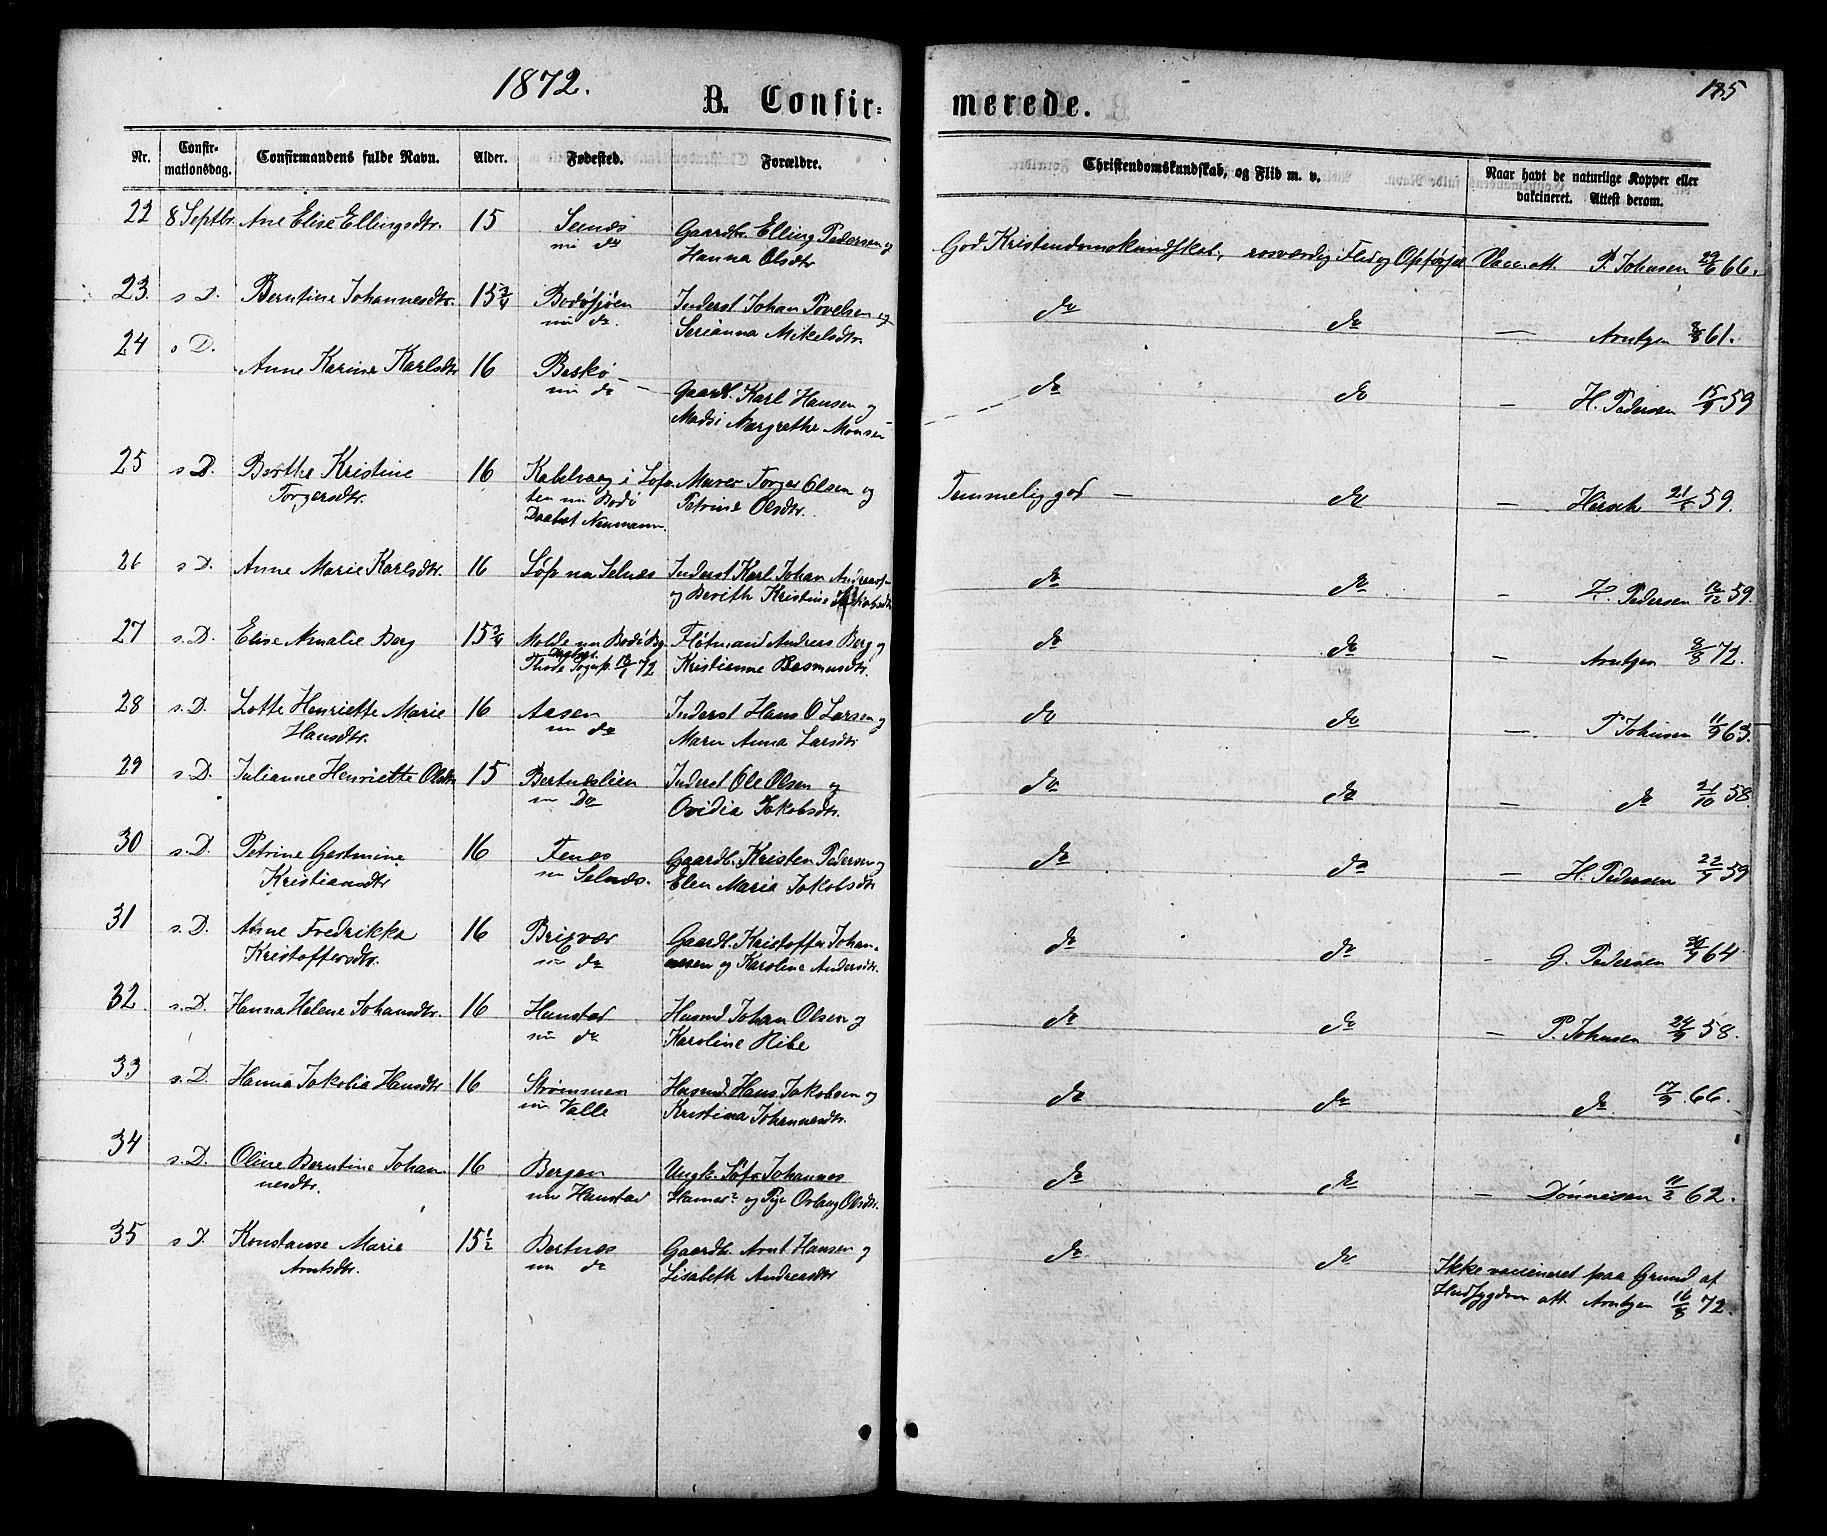 1872.
B. Confir=
merede.
185
Nr.
Confir-
mationsdag.
Confirmandens fulde Navn.
Alder.
Fødested.
Forældre.
Christendomskundskab, og Flid m. v.
Naar havt de naturlige Kopper eller
vakcineret. Attest derom.
22 8 Septbr. Ane Elise Ellingsdtr. 15
nu do
Gaardbr. Elling Pedersen og
Hanna Olsdtr
God Kristendomskundskab, rosværdig Flid og Opførsel Vacc. att. P. Johnsen 29/6 66.
23. s D. Berntine Johannesdtr. 15 3/4 Bodøsjøen
nu do.
Inderst Johan Povelsen og
Serianna Mikelsdtr.
do do — Arntzen 61.
24 s D. Anne Karine Karlsdtr 16 Baskø
nu do
Gaardb. Karl Hansen og
Madsi Margrethe Monsen
do do — H. Pedersen 15/9 59
25 s D. Berthe Kristine
Torgersdtr.
16 Kabelvaag i Lofo-
ten nu Bodø
Neumann.
Murer Torger Olsen og
Petrine Olsdtr.
Temmelig god — do — Hersch 59.
26 s D. Anne Marie Karlsdtr. 16 Løp nu Selnæs
Inderst Karl Johan
og Berith Kristine Jakobsdtr
do do - H. Pedersen 59.
27 s. D. Elise Amalie Berg 15 3/4 Molde nu Bodø
72
Fløtmand Andreas Berg og
Kristianne Rasmusdtr.
do do - Arntzen 72.
28 s. D. Lotte Henriette Marie
Hansdtr.
16 Aasen
nu do
Inderst Hans O Larsen og
Maru Anna Larsdtr
do do — P Johnsen 11/9 63.
29 s D. Julianne Henriette Olsdtr 15 Bertneslien
nu Do
Inderst Ole Olsen og
Ovidia Jakobsdtr.
do do - do 21/10 58
30 s. D. Petrine Gertmine
Kristiansdtr
16 Fenes
nu Selnæs.
Gaardb. Kristen Pedersen og
Elen Maria Jakobsdtr
do do — H. Pedersen 22/9 59
31 s. D. Anne Fredrikka
Kristoffersdtr.
16 Brixvær
nu do
Gaardb. Kristoffer Johan-
nesen og Karoline Andersdtr.
do do - G. Pedersen 64
32. s. D. Hanna Helene Johansdtr. 16 Hunstad
nu do
Husmd. Johan Olsen og
Karoline Ribe
do do — P. Johnsen 24/9 58.
33 s. D. Hanna Jakobia Hansdtr 16 Strømmen
nu Valle
Husmd. Hans Jakobsen og
Kristina Johannesdtr.
do do do 17/9 66.
34 s. D. Oline Berntine Johan-
nesdtr.
16 Bergen
nu Hunstad
Ungk. Johannes
og Pige Olsdtr.
do do — Dønnesen 62.
35 s D. Konstanse Marie
Arntsdtr.
15 1/2 Bertnes
nu do
Gaardbr. Arnt Hansen og
Lisabeth Andreasdtr
do do Ikke vaccineret paa Grund af
Hudsygdom att. Arntzen 16/8 72.